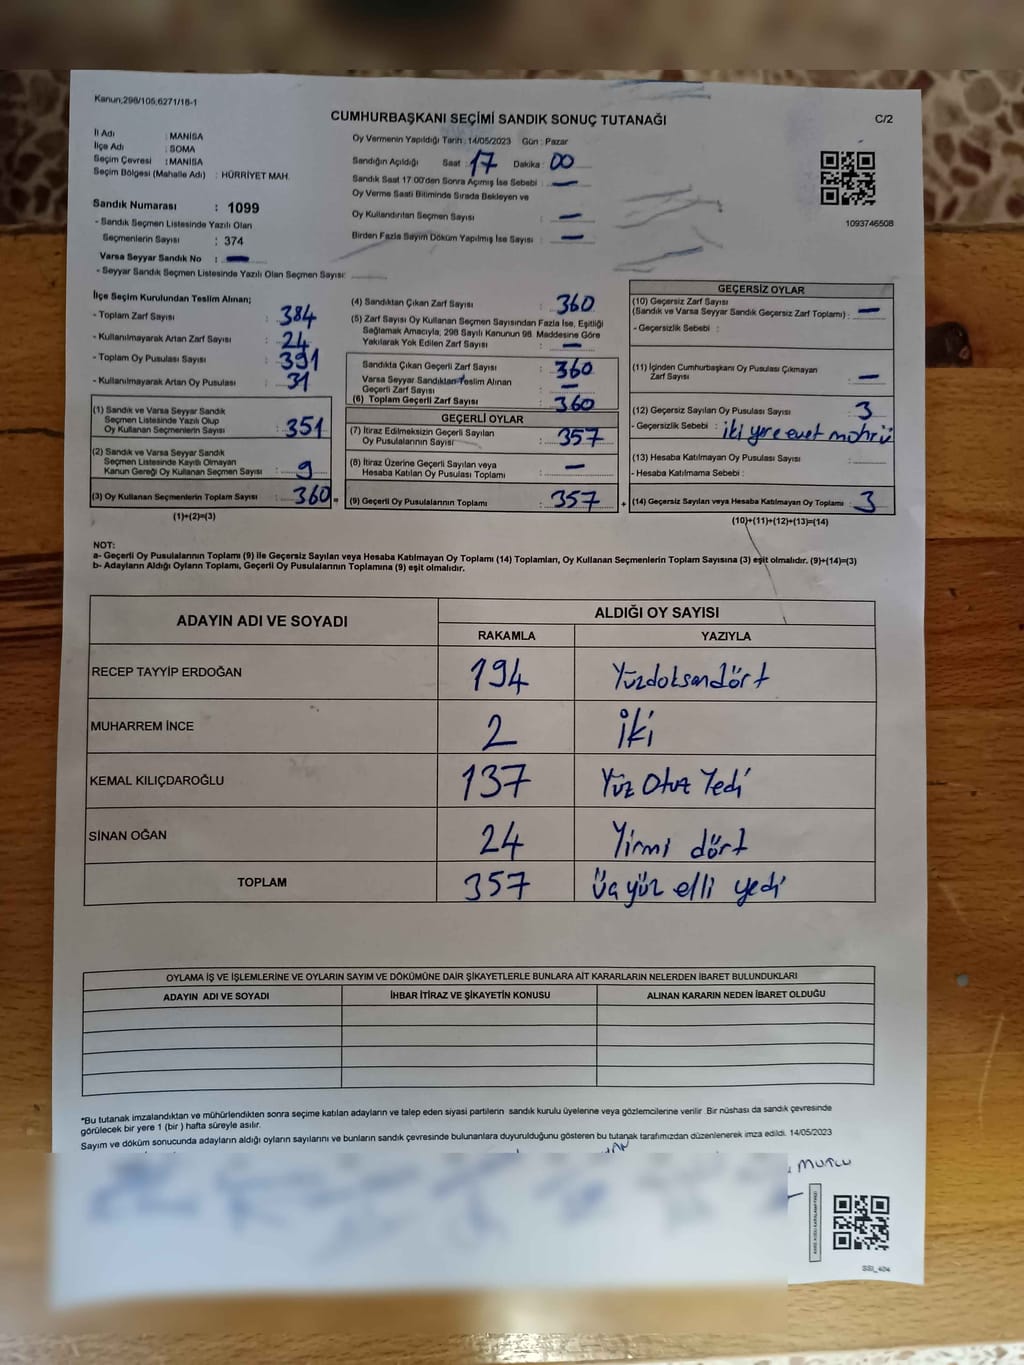 Kanun,298/105,6271/18-1
CUMHURBAŞKANI SEÇİMİ SANDIK SONUÇ TUTANAĞI
C/2
İl Adı : MANİSA
İlçe Adı : SOMA
Seçim Çevresi : MANİSA
Seçim Bölgesi (Mahalle Adı) : HÜRRİYET MAH.
Sandık Numarası : 1099
- Sandık Seçmen Listesinde Yazılı Olan
Seçmenlerin Sayısı : 374
Varsa Seyyar Sandık No : —
- Seyyar Sandık Seçmen Listesinde Yazılı Olan Seçmen Sayısı:
Oy Vermenin Yapıldığı Tarih : 14/05/2023 Gün : Pazar
Sandığın Açıldığı Saat : 17 Dakika : 00
Sandık Saat 17:00'den Sonra Açımış İse Sebebi : —
Oy Verme Saati Bitiminde Sırada Bekleyen ve
Oy Kullandırılan Seçmen Sayısı : —
Birden Fazla Sayım Döküm Yapılmış İse Sayısı : —
1093746508
İlçe Seçim Kurulundan Teslim Alınan;
- Toplam Zarf Sayısı : 384
- Kullanılmayarak Artan Zarf Sayısı : 24
- Toplam Oy Pusulası Sayısı : 391
- Kullanılmayarak Artan Oy Pusulası : 31
(1) Sandık ve Varsa Seyyar Sandık
Seçmen Listesinde Yazılı Olup
Oy Kullanan Seçmenlerin Sayısı : 351
(2) Sandık ve Varsa Seyyar Sandık
Seçmen Listesinde Kayıtlı Olmayan
Kanun Gereği Oy Kullanan Seçmen Sayısı : 9
(3) Oy Kullanan Seçmenlerin Toplam Sayısı : 360 =
(1)+(2)=(3)
(4) Sandıktan Çıkan Zarf Sayısı : 360
(5) Zarf Sayısı Oy Kullanan Seçmen Sayısından Fazla İse, Eşitliği
Sağlamak Amacıyla, 298 Sayılı Kanunun 98. Maddesine Göre
Yakılarak Yok Edilen Zarf Sayısı : —
Sandıkta Çıkan Geçerli Zarf Sayısı : 360
Varsa Seyyar Sandıktan Teslim Alınan
Geçerli Zarf Sayısı : —
(6) Toplam Geçerli Zarf Sayısı : 360
GEÇERLİ OYLAR
(7) İtiraz Edilmeksizin Geçerli Sayılan
Oy Pusulalarının Sayısı : 357
(8) İtiraz Üzerine Geçerli Sayılan veya
Hesaba Katılan Oy Pusulası Toplamı : —
(9) Geçerli Oy Pusulalarının Toplamı : 357 +
GEÇERSİZ OYLAR
(10) Geçersiz Zarf Sayısı
(Sandık ve Varsa Seyyar Sandık Geçersiz Zarf Toplamı) : —
- Geçersizlik Sebebi :
(11) İçinden Cumhurbaşkanı Oy Pusulası Çıkmayan
Zarf Sayısı : —
(12) Geçersiz Sayılan Oy Pusulası Sayısı : 3
- Geçersizlik Sebebi : iki yere evet mührü
(13) Hesaba Katılmayan Oy Pusulası Sayısı :
- Hesaba Katılmama Sebebi :
(14) Geçersiz Sayılan veya Hesaba Katılmayan Oy Toplamı : 3
(10)+(11)+(12)+(13)=(14)
NOT:
a- Geçerli Oy Pusulalarının Toplamı (9) ile Geçersiz Sayılan veya Hesaba Katılmayan Oy Toplamı (14) Toplamları, Oy Kullanan Seçmenlerin Toplam Sayısına (3) eşit olmalıdır. (9)+(14)=(3)
b- Adayların Aldığı Oyların Toplamı, Geçerli Oy Pusulalarının Toplamına (9) eşit olmalıdır.
ADAYIN ADI VE SOYADI
ALDIĞI OY SAYISI
RAKAMLA YAZIYLA
RECEP TAYYİP ERDOĞAN 194 Yüzdoksandört
MUHARREM İNCE 2 İki
KEMAL KILIÇDAROĞLU 137 Yüz Otuz Yedi
SİNAN OĞAN 24 Yirmi dört
TOPLAM 357 üç yüz elli yedi
OYLAMA İŞ VE İŞLEMLERİNE VE OYLARIN SAYIM VE DÖKÜMÜNE DAİR ŞİKAYETLERLE BUNLARA AİT KARARLARIN NELERDEN İBARET BULUNDUKLARI
ADAYIN ADI VE SOYADI İHBAR İTİRAZ VE ŞİKAYETİN KONUSU ALINAN KARARIN NEDEN İBARET OLDUĞU
*Bu tutanak imzalandıktan ve mühürlendikten sonra seçime katılan adayların ve talep eden siyasi partilerin sandık kurulu üyelerine veya gözlemcilerine verilir Bir nüshası da sandık çevresinde
görülecek bir yere 1 (bir ) hafta süreyle asılır.
Sayım ve döküm sonucunda adayların aldığı oyların sayılarını ve bunların sandık çevresinde bulunanlara duyurulduğunu gösteren bu tutanak tarafımızdan düzenlenerek imza edildi. 14/05/2023
MUTLU
SSI_404